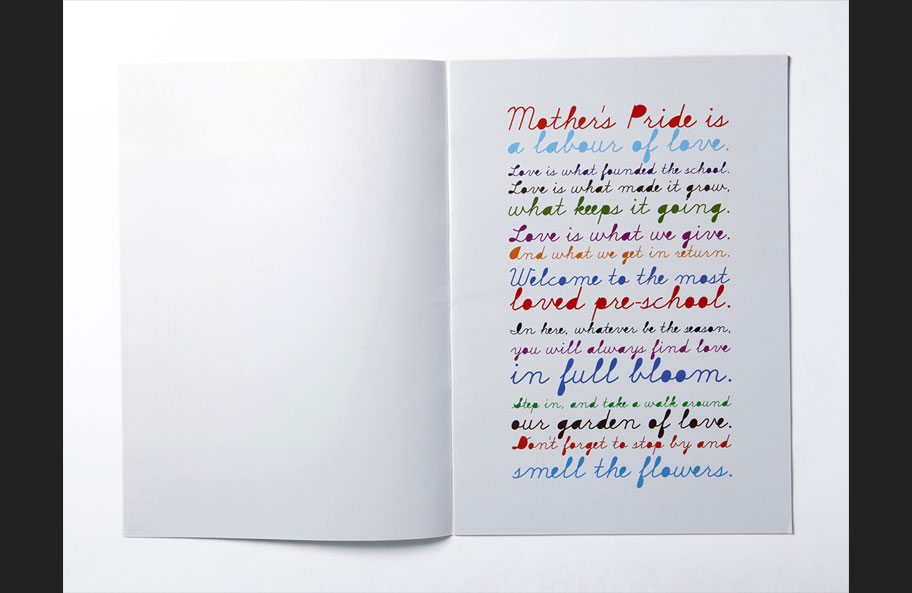 Mother's Pride is
a labour of love.
Love is what founded the school.
Love is what made it grow,
what keeps it going.
Love is what we give.
And what we get in return.
Welcome to the most
loved pre-school.
In here, whatever be the season,
you will always find love
in full bloom.
Step in, and take a walk around
our garden of love.
Don't forget to stop by and
smell the flowers.